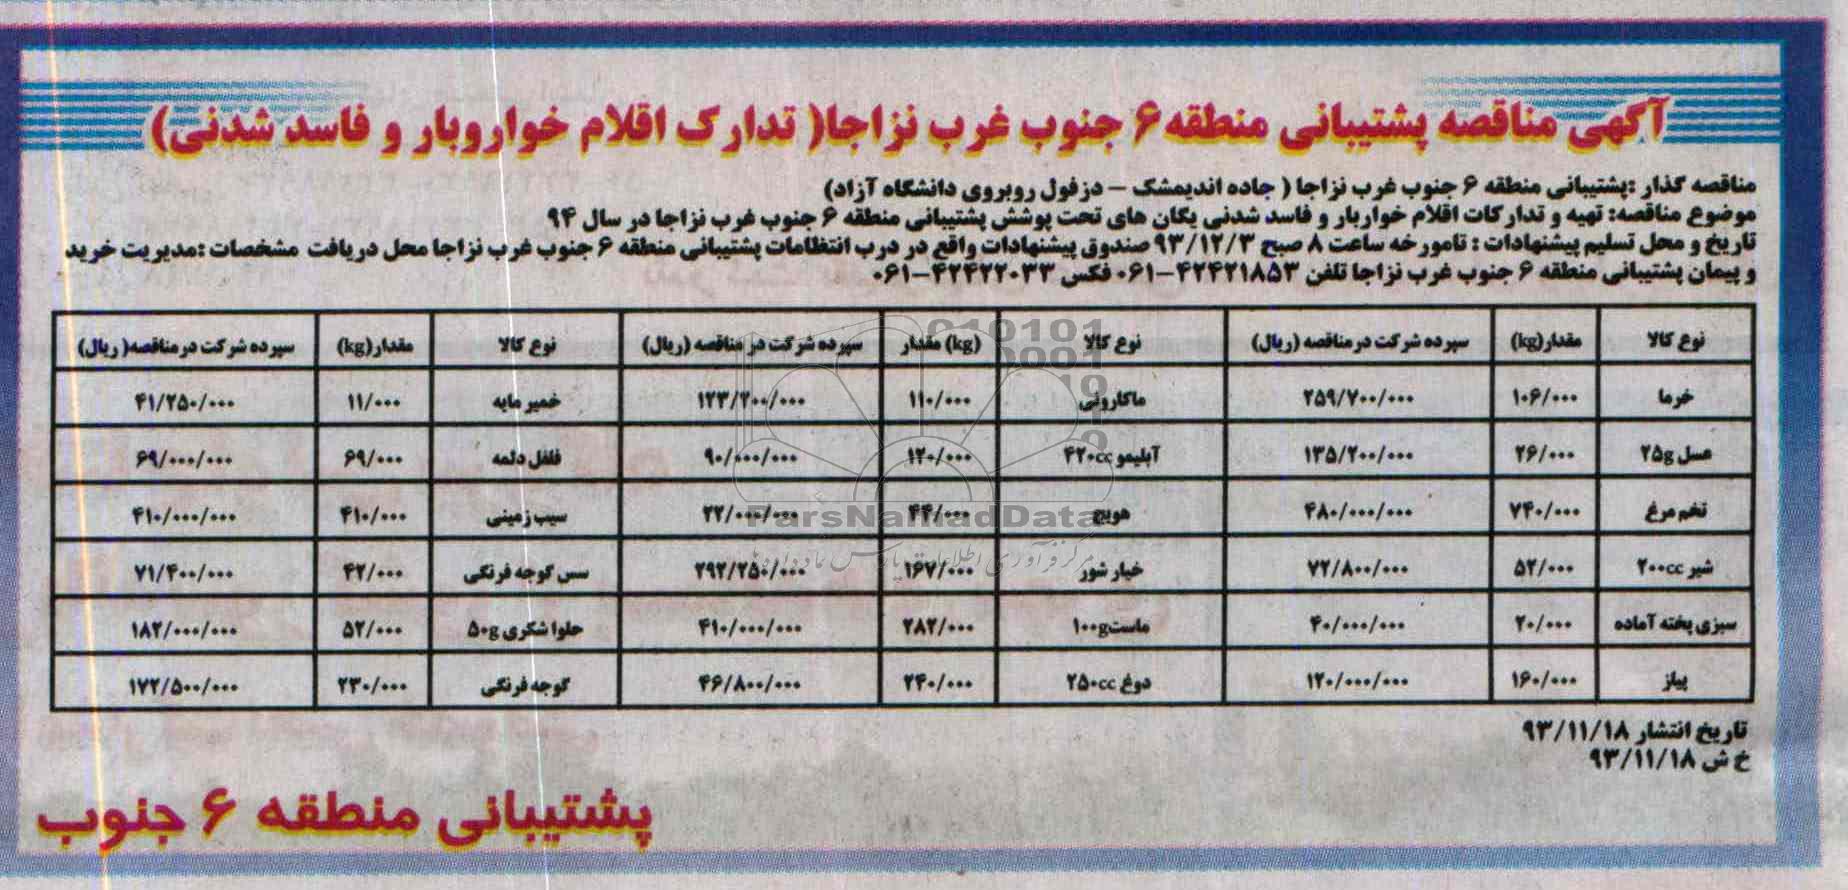 آگهی مناقصه پشتیبانی منطقه ۶ جنوب غرب نزاجا( تدارک اقلام خواروبار و فاسد شدنی)
مناقصه گذار :پشتیبانی منطقه ۶ جنوب غرب نزاجا ( جاده اندیمشک – دزفول روبروی دانشگاه آزاد)
موضوع مناقصه: تهیه و تدارکات اقلام خواربار و فاسد شدنی یگان های تحت پوشش پشتیبانی منطقه ۶ جنوب غرب نزاجا در سال ۹۴
تاریخ و محل تسلیم پیشنهادات : تامورخه ساعت ۸ صبح ۹۳/۱۲/۳ صندوق پیشنهادات واقع در درب انتظامات پشتیبانی منطقه ۶ جنوب غرب نزاجا محل دریافت مشخصات :مدیریت خرید
و پیمان پشتیبانی منطقه ۶ جنوب غرب نزاجا تلفن ۴۲۴۲۱۸۵۳-۰۶۱ فکس ۴۲۴۲۲۰۳۳-۰۶۱
نوع کالا مقدار(kg) سپرده شرکت درمناقصه (ریال) نوع کالا مقدار (kg) سپرده شرکت در مناقصه (ریال) نوع کالا مقدار(kg) سپرده شرکت درمناقصه( ریال)
خرما ۱۰۶/۰۰۰ ۲۵۹/۷۰۰/۰۰۰ ماکارونی ۱۱۰/۰۰۰ ۱۲۳/۲۰۰/۰۰۰ خمیر مایه ۱۱/۰۰۰ ۴۱/۲۵۰/۰۰۰
عسل ۲۵g ۲۶/۰۰۰ ۱۳۵/۲۰۰/۰۰۰ آبلیمو ۴۲۰cc ۱۲۰/۰۰۰ ۹۰/۰۰۰/۰۰۰ فلفل دلمه ۶۹/۰۰۰ ۶۹/۰۰۰/۰۰۰
تخم مرغ ۷۴۰/۰۰۰ ۴۸۰/۰۰۰/۰۰۰ هویج ۴۴/۰۰۰ ۲۲/۰۰۰/۰۰۰ سیب زمینی ۴۱۰/۰۰۰ ۴۱۰/۰۰۰/۰۰۰
شیر ۲۰۰cc ۵۲/۰۰۰ ۷۲/۸۰۰/۰۰۰ خیار شور ۱۶۷/۰۰۰ ۲۹۲/۲۵۰/۰۰۰ سس گوجه فرنگی ۴۲/۰۰۰ ۷۱/۴۰۰/۰۰۰
سبزی پخته آماده ۲۰/۰۰۰ ۴۰/۰۰۰/۰۰۰ ماست۱۰۰g ۲۸۲/۰۰۰ ۴۱۰/۰۰۰/۰۰۰ حلوا شکری ۵۰g ۵۲/۰۰۰ ۱۸۲/۰۰۰/۰۰۰
پیاز ۱۶۰/۰۰۰ ۱۲۰/۰۰۰/۰۰۰ دوغ ۲۵۰cc ۲۴۰/۰۰۰ ۴۶/۸۰۰/۰۰۰ گوجه فرنگی ۲۳۰/۰۰۰ ۱۷۲/۵۰۰/۰۰۰
ParsNamadData
تاریخ انتشار ۹۳/۱۱/۱۸
خ ش ۹۳/۱۱/۱۸
پشتیبانی منطقه ۶ جنوب